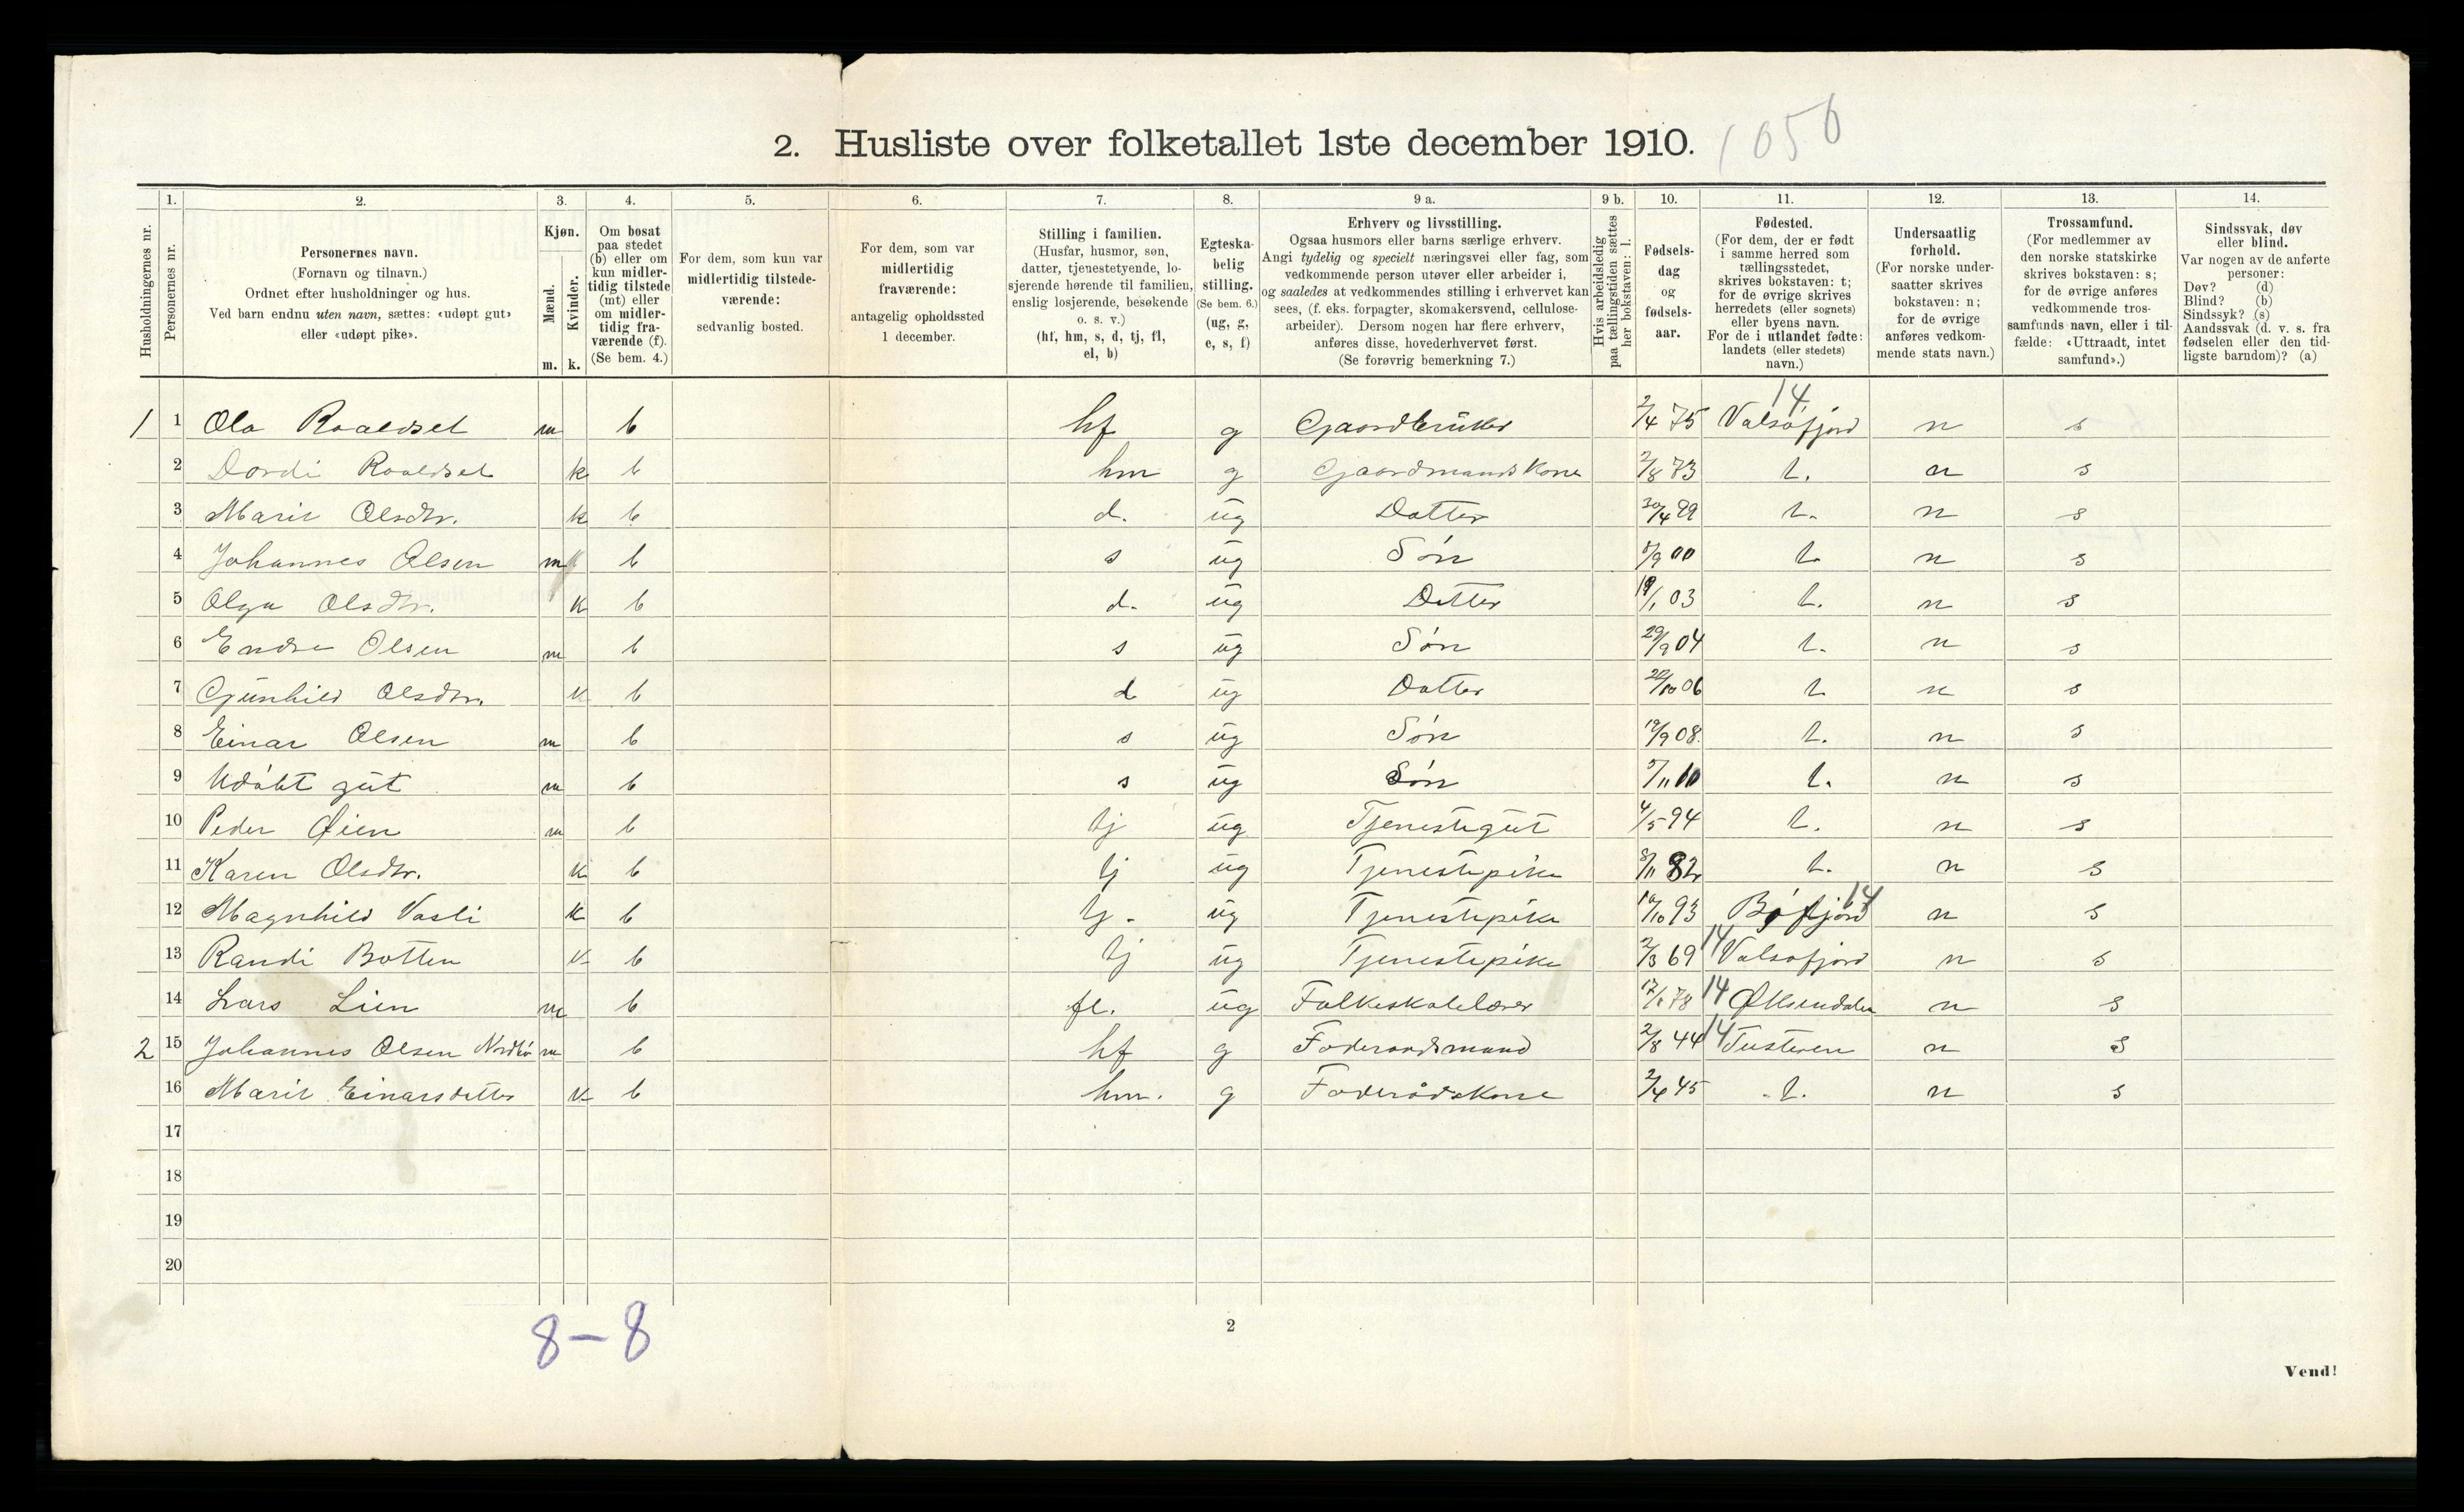 2. Husliste over folketallet 1ste december 1910. 1056
Husholdningernes nr.
1. Personernes nr.
2. Personernes navn.
(Fornavn og tilnavn.)
Ordnet efter husholdninger og hus.
Ved barn endnu uten navn, sættes: «udøpt gut»
eller «udøpt pike».
3. Kjøn.
Mænd. m.
Kvinder. k.
4. Om bosat
paa stedet
(b) eller om
kun midler-
tidig tilstede
(mt) eller
om midler-
tidig fra-
værende (f).
(Se bem. 4.)
5. For dem, som kun var
midlertidig tilstede-
værende:
sedvanlig bosted.
6. For dem, som var
midlertidig
fraværende:
antagelig opholdssted
1 december.
7. Stilling i familien.
(Husfar, husmor, søn,
datter, tjenestetyende, lo-
sjerende hørende til familien,
enslig losjerende, besøkende
o. s. v.)
(hf, hm, s, d, tj, fl,
el, b)
8. Egteska-
belig
stilling.
(Se bem. 6.)
(ug, g,
e, s, f)
9 a. Erhverv og livsstilling.
Ogsaa husmors eller barns særlige erhverv.
Angi tydelig og specielt næringsvei eller fag, som
vedkommende person utøver eller arbeider i,
og saaledes at vedkommendes stilling i erhvervet kan
sees, (f. eks. forpagter, skomakersvend, cellulose-
arbeider). Dersom nogen har flere erhverv,
anføres disse, hovederhvervet først.
(Se forøvrig bemerkning 7.)
9 b. Hvis arbeidsledig
paa tællingstiden sættes
her bokstaven: l.
10. Fødsels-
dag
og
fødsels-
aar.
11. Fødested.
(For dem, der er født
i samme herred som
tællingsstedet,
skrives bokstaven: t;
for de øvrige skrives
herredets (eller sognets)
eller byens navn.
For de i utlandet fødte:
landets (eller stedets)
navn.)
12. Undersaatlig
forhold.
(For norske under-
saatter skrives
bokstaven: n;
for de øvrige
anføres vedkom-
mende stats navn.)
13. Trossamfund.
(For medlemmer av
den norske statskirke
skrives bokstaven: s;
for de øvrige anføres
vedkommende tros-
samfunds navn, eller i til-
fælde: «Uttraadt, intet
samfund».)
14. Sindssvak, døv
eller blind.
Var nogen av de anførte
personer:
Døv? (d)
Blind? (b)
Sindssyk? (s)
Aandssvak (d. v. s. fra
fødselen eller den tid-
ligste barndom)? (a)
14
1 1 Ola Roaldset m b hf g Gaardbruker 2/4 75 Valsøfjord n s
2 Dordi Roaldset k b hm g Gaardmandskone 2/8 73 t. n s
3 Marit Olsdtr. k b d. ug Datter 30/4 99 t. n s
4 Johannes Olsen m b s ug Søn 8/9 00 t n s
5 Olga Olsdtr. k b d. ug Datter 19/1 03 t. n s
6 Endre Olsen m b s ug Søn 29/9 04 t. n s
7 Gunhild Olsdtr. k b d ug Datter 22/10 06 t n s
8 Einar Olsen m b s ug Søn 19/9 08. t. n s
9 Udøbt gut m b s ug Søn 5/11 10 t. n s
10 Peder Øien m b tj ug Tjenestegut 4/5 94 t. n s
11 Karen Olsdtr. k b tj ug Tjenestepike 8/11 82 t. n s
12 Magnhild Vasli k b tj. ug Tjenestepike 19/10 93 Bøfjord 14 n s
13 Randi Botten k b tj ug Tjenestepike 2/3 69 14 Valsøfjord n s
14 Lars Lien m b fl. ug Folkeskolelærer 17/1 78 14 Øksendalen n s
2 15 Johannes Olsen m b hf g Foderaadsmand 2/8 44 14 Tusteren n s
16 Marit Einarsdatter k b hm. g Foderådskone 2/4 45 t. n s
17
18
19
20
8-8
2
Vend!